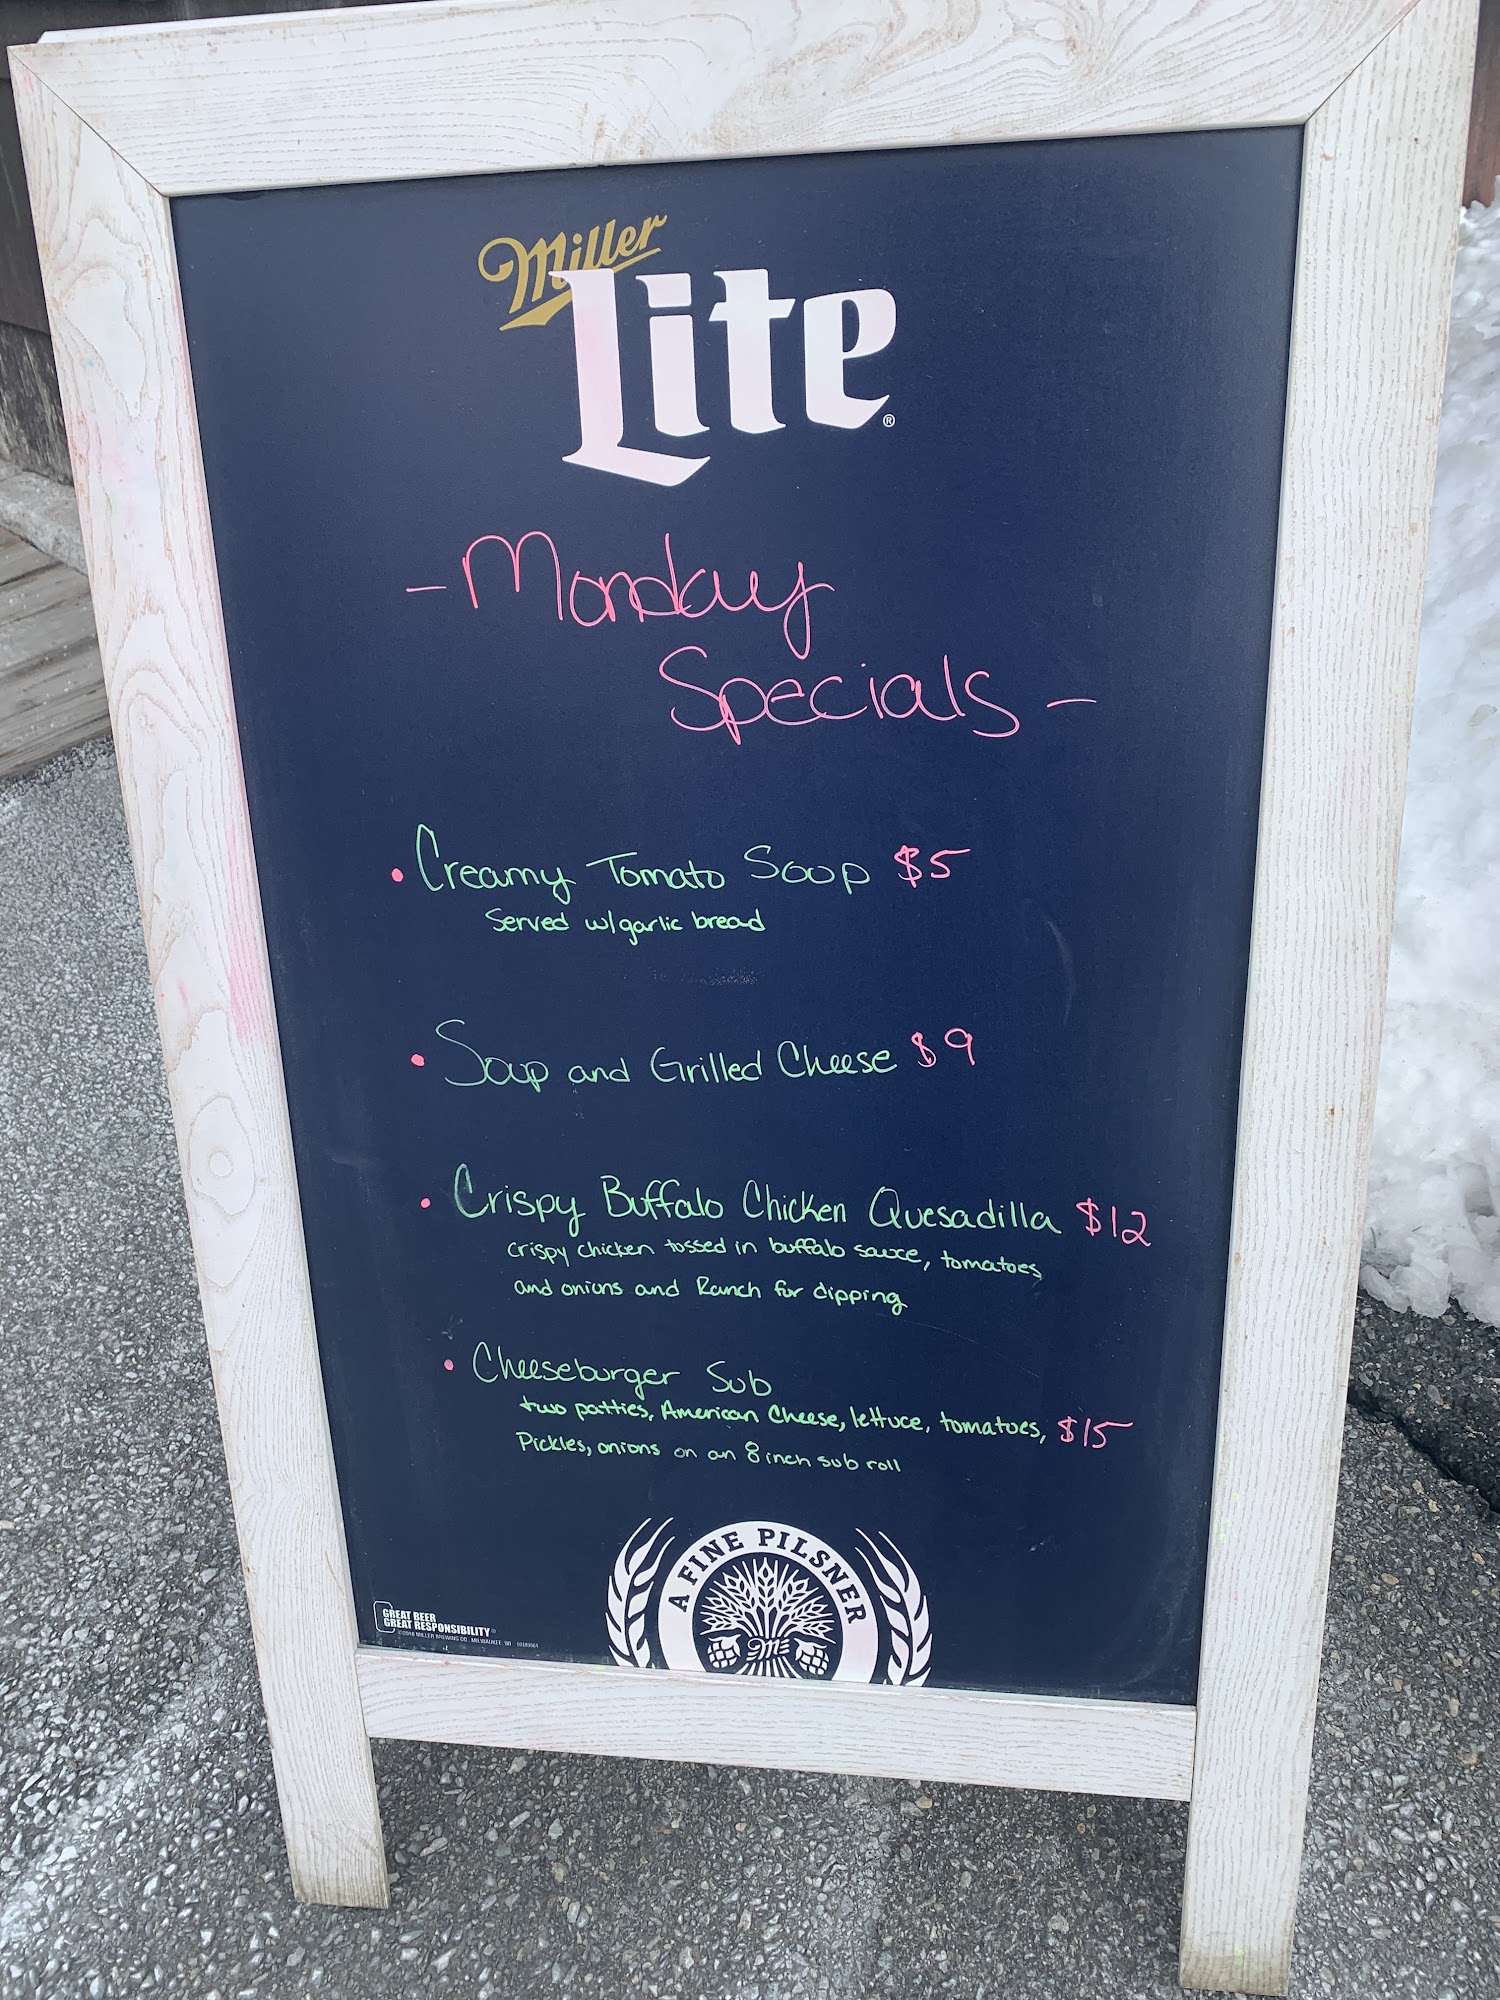 Miller
Lite®
- Monday
Specials -
• Creamy Tomato Soup $5
Served w/garlic bread
• Soup and Grilled Cheese $9
• Crispy Buffalo Chicken Quesadilla $12
crispy chicken tossed in buffalo sauce, tomatoes
and onions and Ranch for dipping
• Cheeseburger Sub
two patties, American Cheese, lettuce, tomatoes, $15
Pickles, onions on an 8 inch sub roll
A FINE PILSNER
M
GREAT BEER
GREAT RESPONSIBILITY®
©2018 MILLER BREWING CO., MILWAUKEE, WI